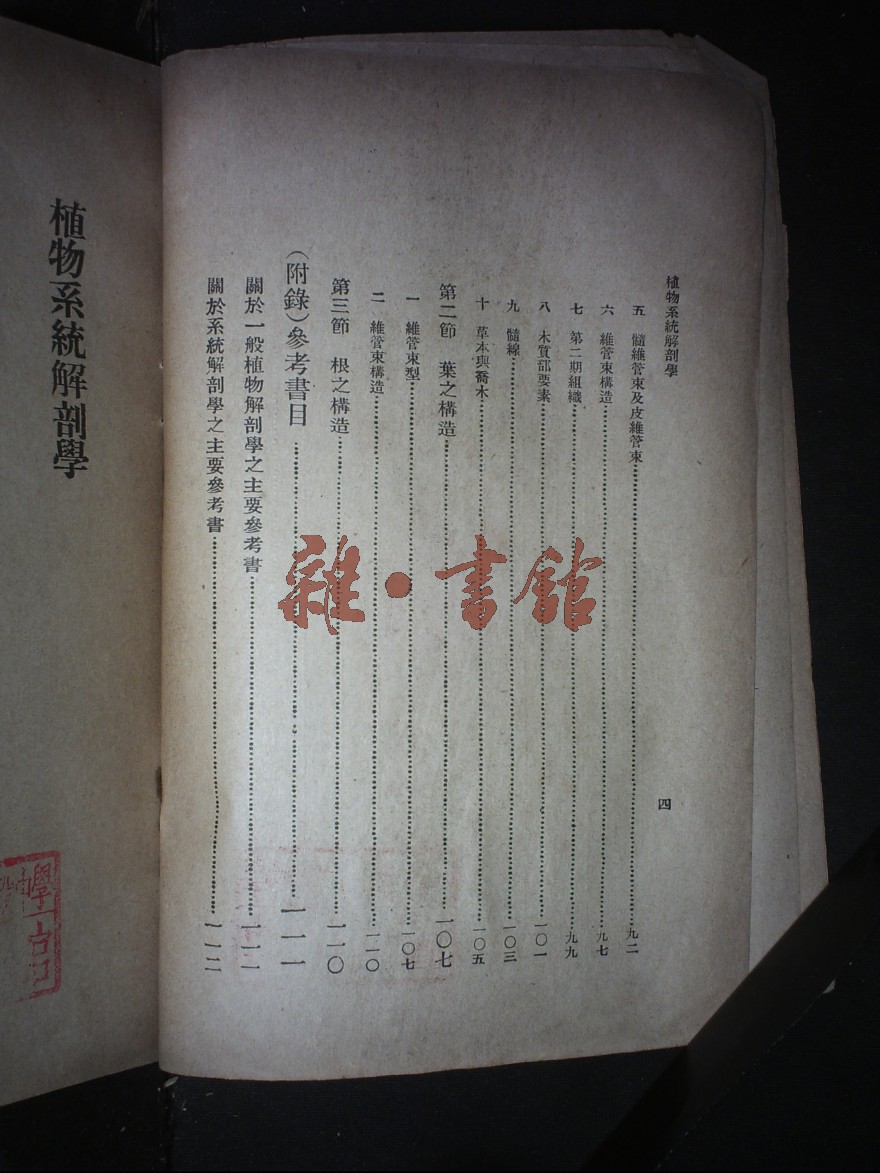 植物系統解剖學
四
五 髓維管束及皮維管束……九二
六 維管束構造……九七
七 第二期組織……九九
八 木質部要素……一〇一
九 髓線……一〇三
十 草本與喬木……一〇五
第二節 葉之構造……一〇七
一 維管束型……一〇七
二 維管束構造……一一〇
第三節 根之構造……一一〇
（附錄）參考書目……一一一
關於一般植物解剖學之主要參考書……一一一
關於系統解剖學之主要參考書……一一二
雜·書館
植物系統解剖學